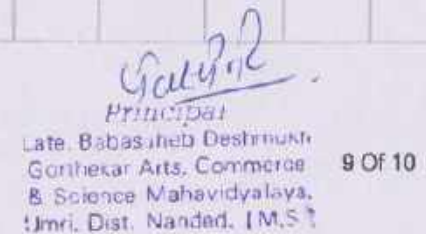 Principal
Late. Babasaheb Deshmukh
Gorthekar Arts, Commerce
& Science Mahavidyalaya,
Umri. Dist. Nanded. [M.S.]
9 Of 10